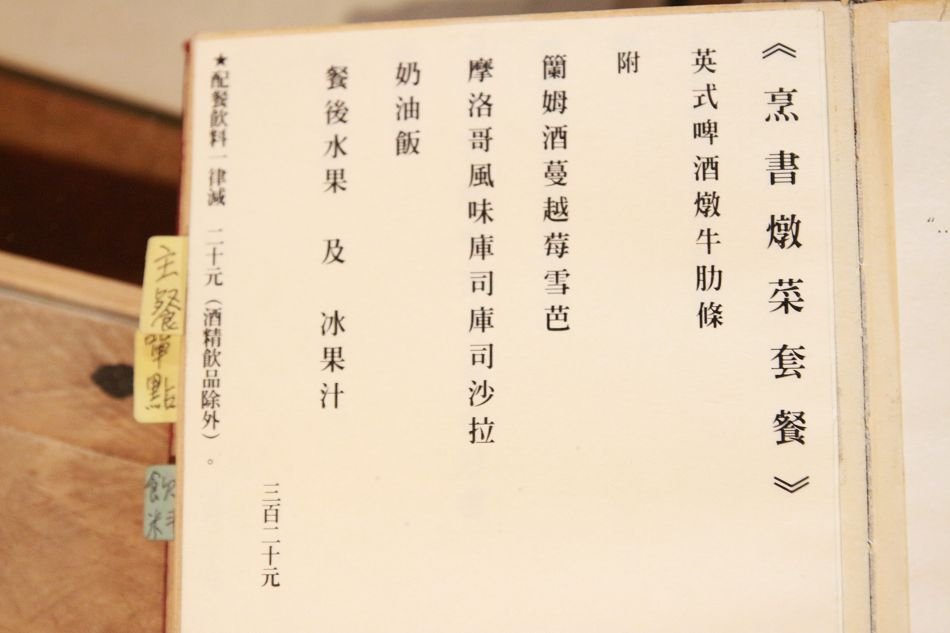 《烹書燉菜套餐》
英式啤酒燉牛肋條
附
蘭姆酒蔓越莓雪芭
摩洛哥風味庫司庫司沙拉
奶油飯
餐後水果 及 冰果汁
三百二十元
★配餐飲料一律減 二十元（酒精飲品除外）。
主餐
單點
飲料